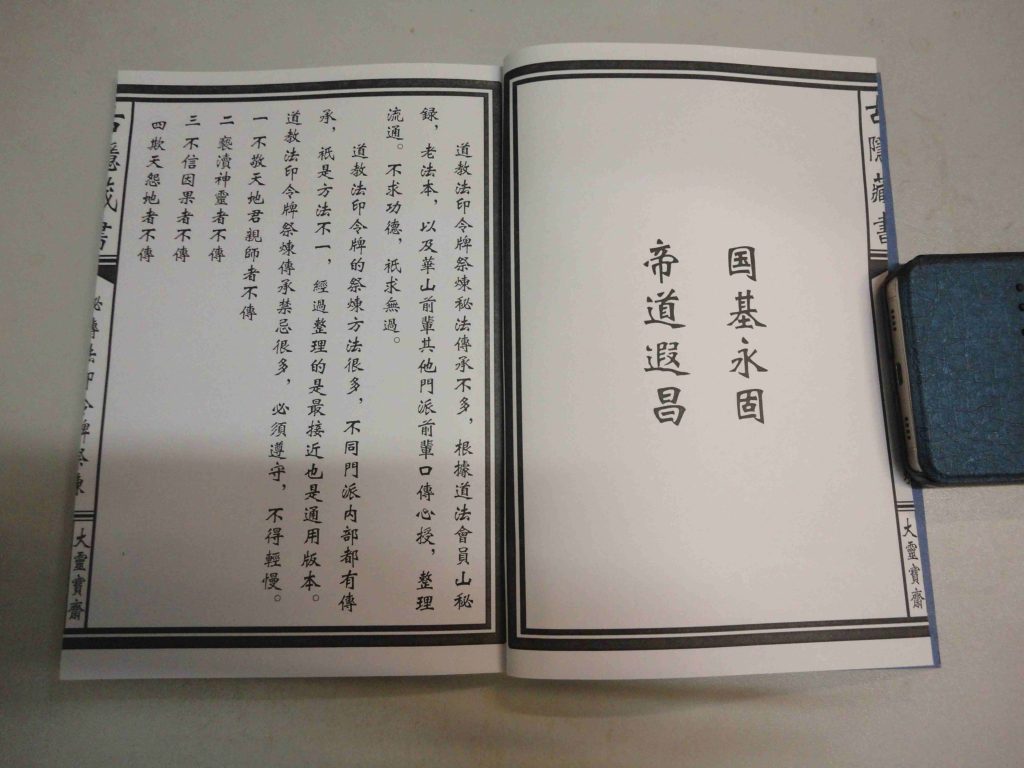 古隱藏書
大靈寶齋
国基永固
帝道遐昌
道教法印令牌祭煉秘法傳承不多，根據道法會員山秘
録，老法本，以及華山前輩其他門派前輩口傳心授，整理
流通。不求功德，祇求無過。
道教法印令牌的祭煉方法很多，不同門派内部都有傳
承，祇是方法不一，經過整理的是最接近也是通用版本。
道教法印令牌祭煉傳承禁忌很多，必須遵守，不得輕慢。
一不敬天地君親師者不傳
二褻瀆神靈者不傳
三不信因果者不傳
四欺天怨地者不傳
古隱藏書
秘傳法印令牌祭煉
大靈寶齋